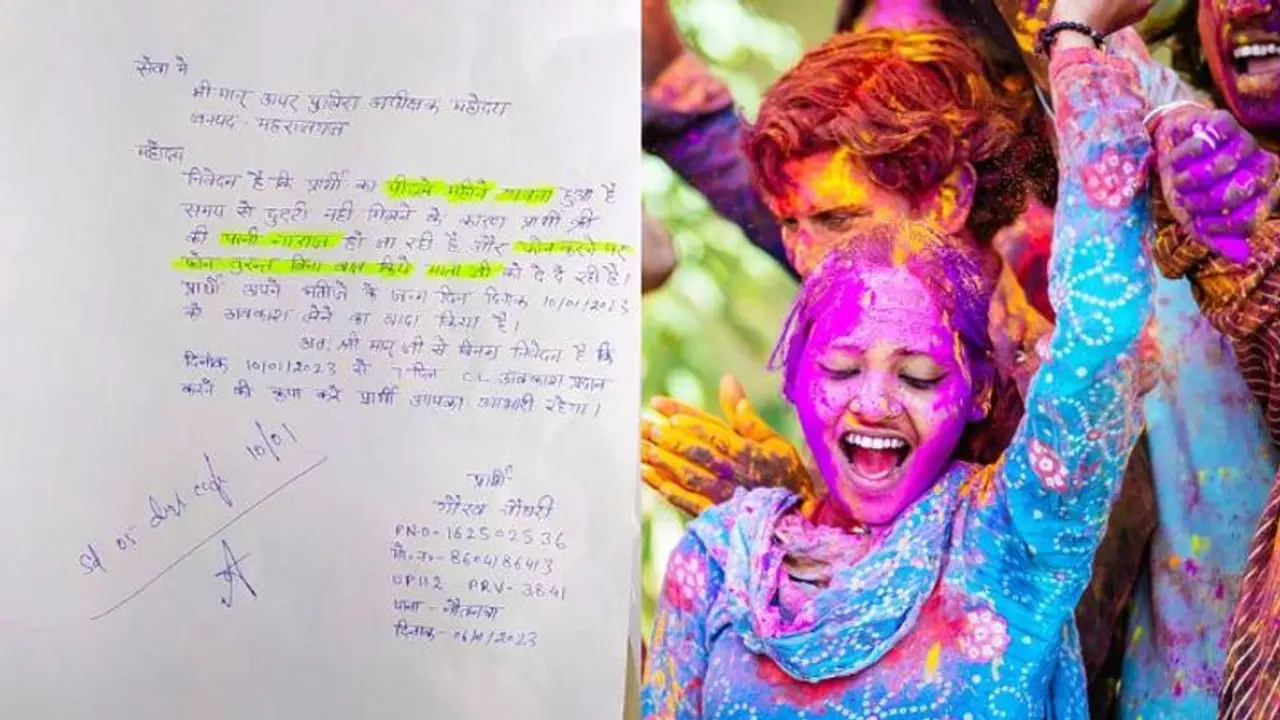 सेवा मे
श्री मान् अपर पुलिस अधीक्षक महोदय
जनपद - महराजगंज
महोदय
निवेदन है कि प्रार्थी का पीछले महिने गवना हुआ है
समय से छुट्टी नही मिलने के कारण प्रार्थी श्री
की पत्नी नाराज हो जा रही है और फोन करने पर
फोन तुरन्त बिना बात किये माता जी को दे दे रही है।
प्रार्थी अपने भतीजे के जन्म दिन दिनांक 10/01/2023
को अवकाश लेने का वादा किया है।
अतः श्री मान् जी से विनम्र निवेदन है कि
दिनांक 10/01/2023 से 7 दिन CL अवकाश प्रदान
करने की कृपा करे प्रार्थी आपका आभारी रहेगा।
05 days 10/01
प्रार्थी
गौरव चौधरी
PNO- 162502536
मो.न.- 8604186413
UP112 PRV- 3841
थाना - नौतनवा
दिनांक- 06/01/2023